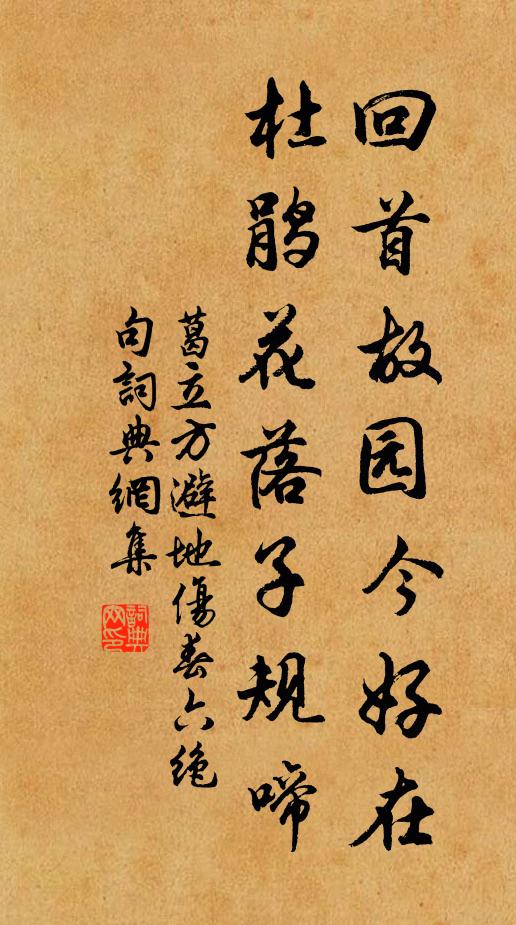 回首故园今好在
杜鹃花落子规啼
葛立方避地傷春六绝
句詞典網集
詞典
网印